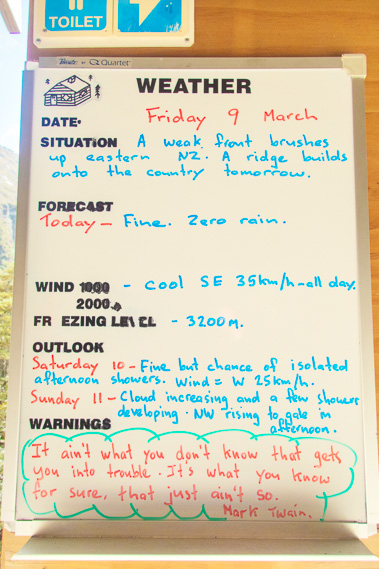 TOILET
Quartet
WEATHER
DATE: Friday 9 March
SITUATION A weak front brushes
up eastern NZ. A ridge builds
onto the country tomorrow.
FORECAST
Today - Fine. Zero rain.
WIND 1000 - cool SE 35km/h - all day.
2000
FR EZING LEVEL - 3200m.
OUTLOOK
Saturday 10 - Fine but chance of isolated
afternoon showers. Wind = W 25km/h.
Sunday 11 - Cloud increasing and a few showers
developing. NW rising to gale in
afternoon.
WARNINGS
It ain't what you don't know that gets
you into trouble. It's what you know
for sure, that just ain't so.
Mark Twain.